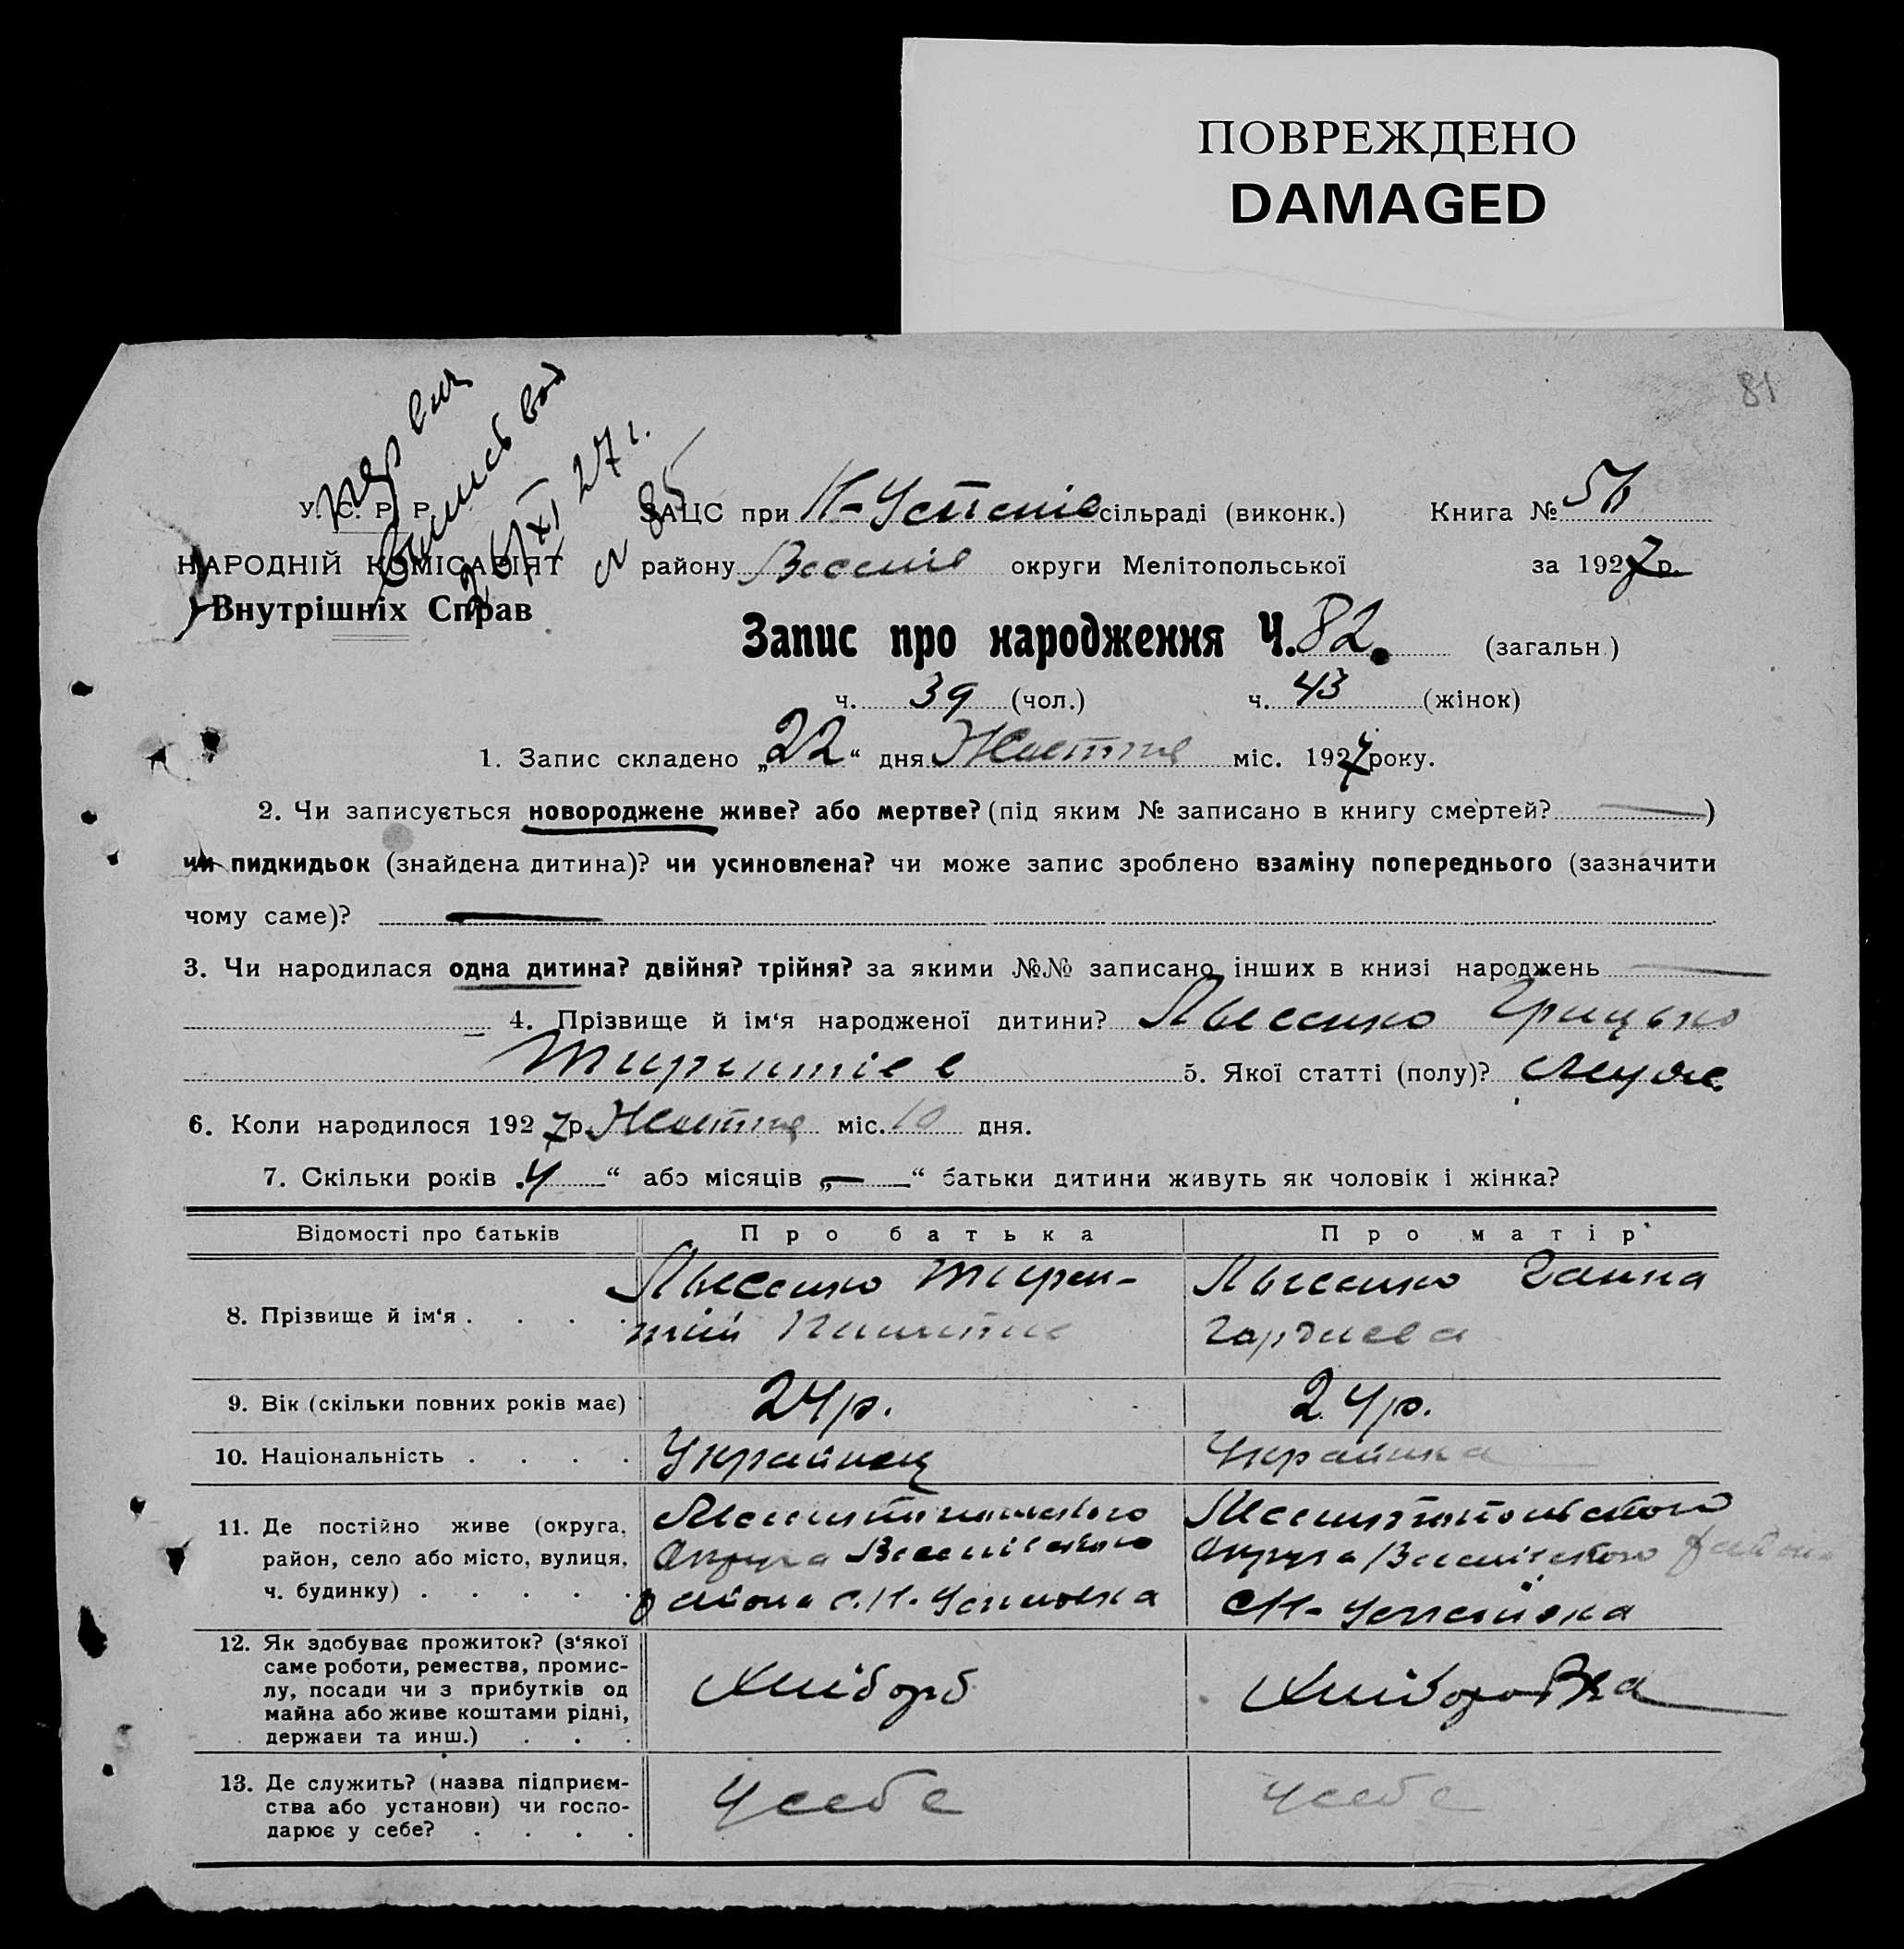 ПОВРЕЖДЕНО
DAMAGED
81
27 г.
№ 85
У. С. Р. Р.
НАРОДНІЙ КОМІСАРІЯТ
Внутрішніх Справ
ЗАЦС при сільраді (виконк.) Книга №
району округи Мелітопольської за 1927 р.
Запис про народження Ч. 82. (загальн.)
ч. 39 (чол.) ч. 43 (жінок)
1. Запис складено „22“ дня Жовтня міс. 1927 року.
2. Чи записується новороджене живе? або мертве? (під яким № записано в книгу смертей? — )
чи пидкидьок (знайдена дитина)? чи усиновлена? чи може запис зроблено взаміну попереднього (зазначити
чому саме)? —
3. Чи народилася одна дитина? двійня? трійня? за якими №№ записано інших в книзі народжень —
4. Прізвище й ім‘я народженої дитини? Лысенко Грицько
5. Якої статті (полу)? муж.
6. Коли народилося 1927 р. Жовтня міс. 10 дня.
7. Скільки років „4“ або місяців „—“ батьки дитини живуть як чоловік і жінка?
Відомості про батьків Про батька Про матір‘
8. Прізвище й ім‘я . . . . Лысенко Терен- Лысенко Ганна
тій Гордиева
9. Вік (скільки повних років має) 24 р. 24 р.
10. Національність . . . . Українец Українка
11. Де постійно живе (округа, Мелитопольского Мелитопольского
район, село або місто, вулиця, Округа Веселівского Округа Веселівского района
ч. будинку) . . . . . района с. Н-Успеновка с Н-Успенівка
12. Як здобуває прожиток? (з‘якої
саме роботи, ремества, промис-
лу, посади чи з прибутків од Хлібороб Хлібороовка
майна або живе коштами рідні,
держави та инш.) . . .
13. Де служить? (назва підприєм- У себе У себе
ства або установи) чи госпо-
дарює у себе? . . . .